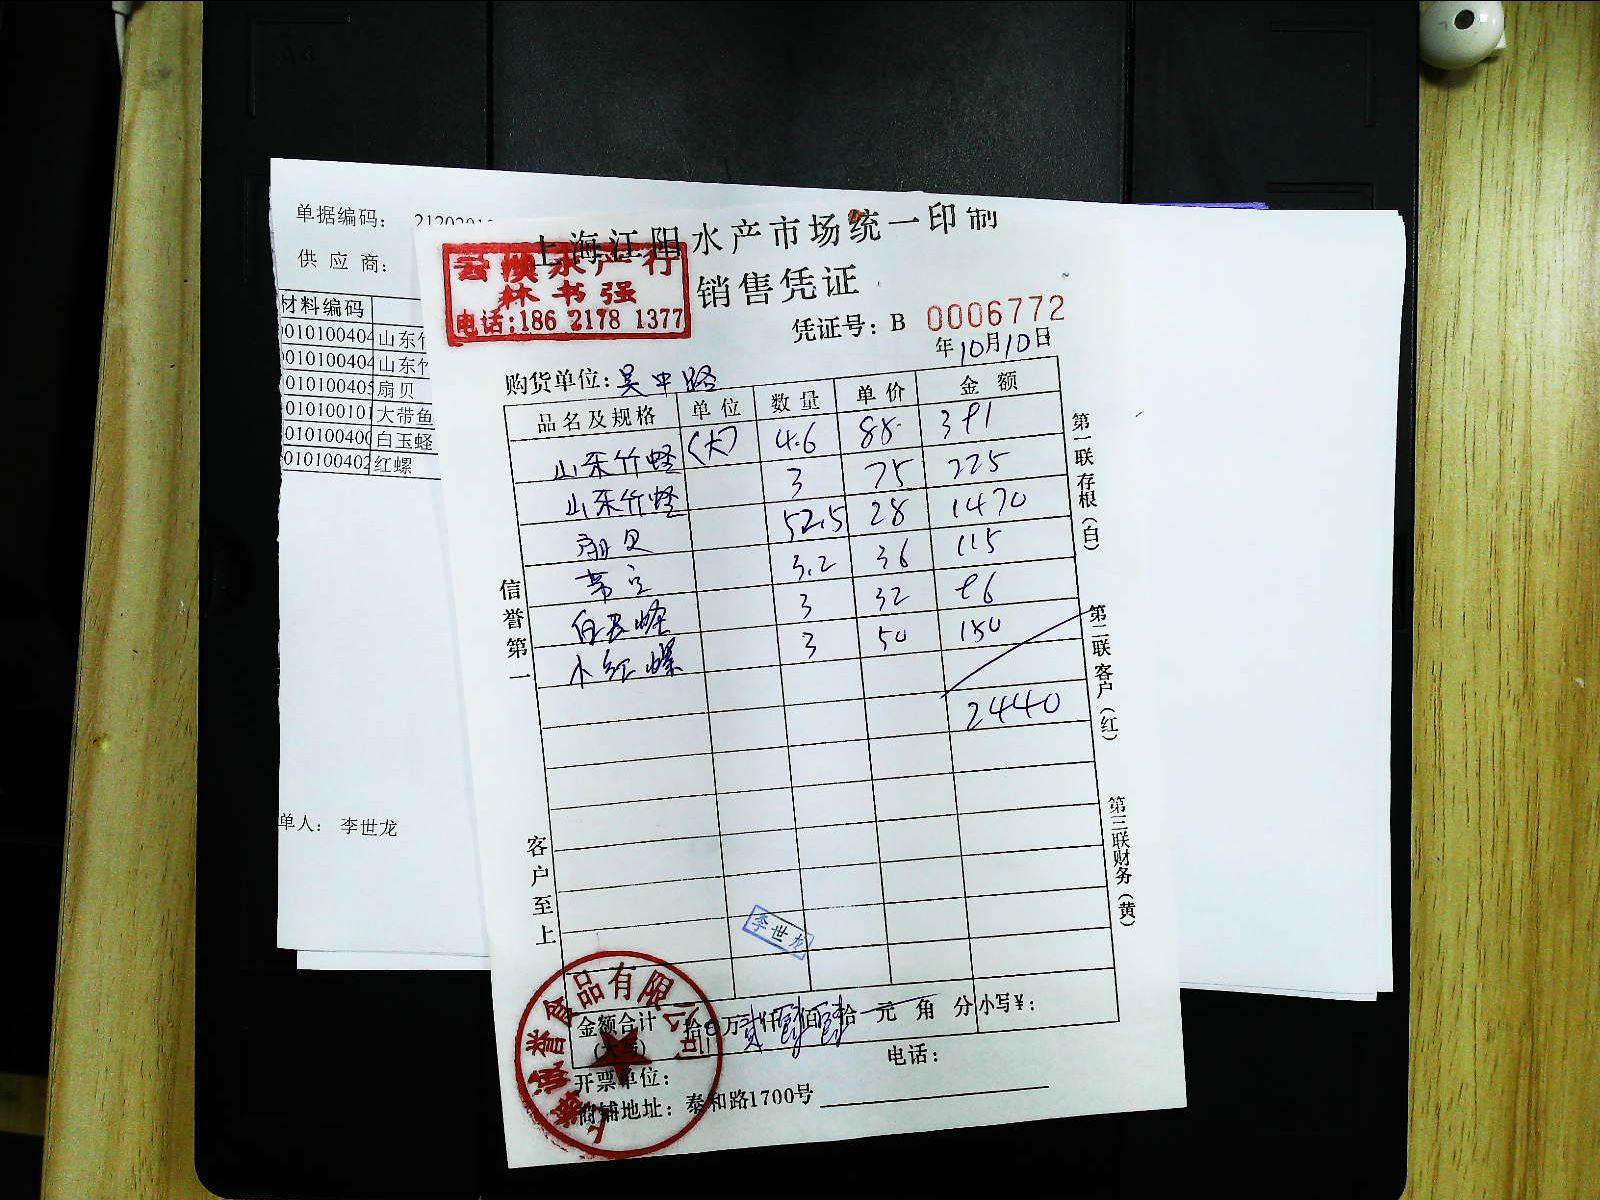 单据编码：
供 应 商：
材料编码
010100404 山东竹
010100404 山东竹
010100405 扇贝
010100101 大带鱼
010100400 白玉蛏
010100402 红螺
单人： 李世龙
上海江阳水产市场统一印制
销售凭证
云顺水产行
林书强
电话:186 2178 1377
凭证号：B 0006772
年10月10日
购货单位: 吴中路
品名及规格 单位 数量 单价 金额
山东竹蛏 (大) 4.6 88 391
山东竹蛏 3 75 225
扇贝 52.5 28 1470
3.2 36 115
白玉蛏 3 32 96
小红螺 3 50 150
2440
信誉第一
客户至上
第一联存根(白)
第二联客户(红)
第三联财务(黄)
李世龙
金额合计 拾 万 贰 仟 肆 佰 肆 拾 元 角 分 小写¥：
(大写)
开票单位： 电话：
商铺地址：泰和路1700号
食品有限公司